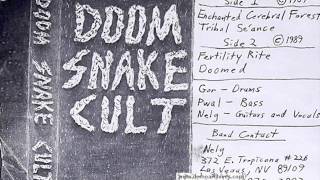 DOOM SNAKE CULT
DOOM
SNAKE
CULT
Side 1 ©
Enchanted Cerebral Forest
Tribal Séance
Side 2 © 1989
Fertility Rite
Doomed
Gor - Drums
Pwal - Bass
Nelg - Guitars and Vocals
Band Contact
Nelg
372 E. Tropicana # 226
Las Vegas, NV 89109